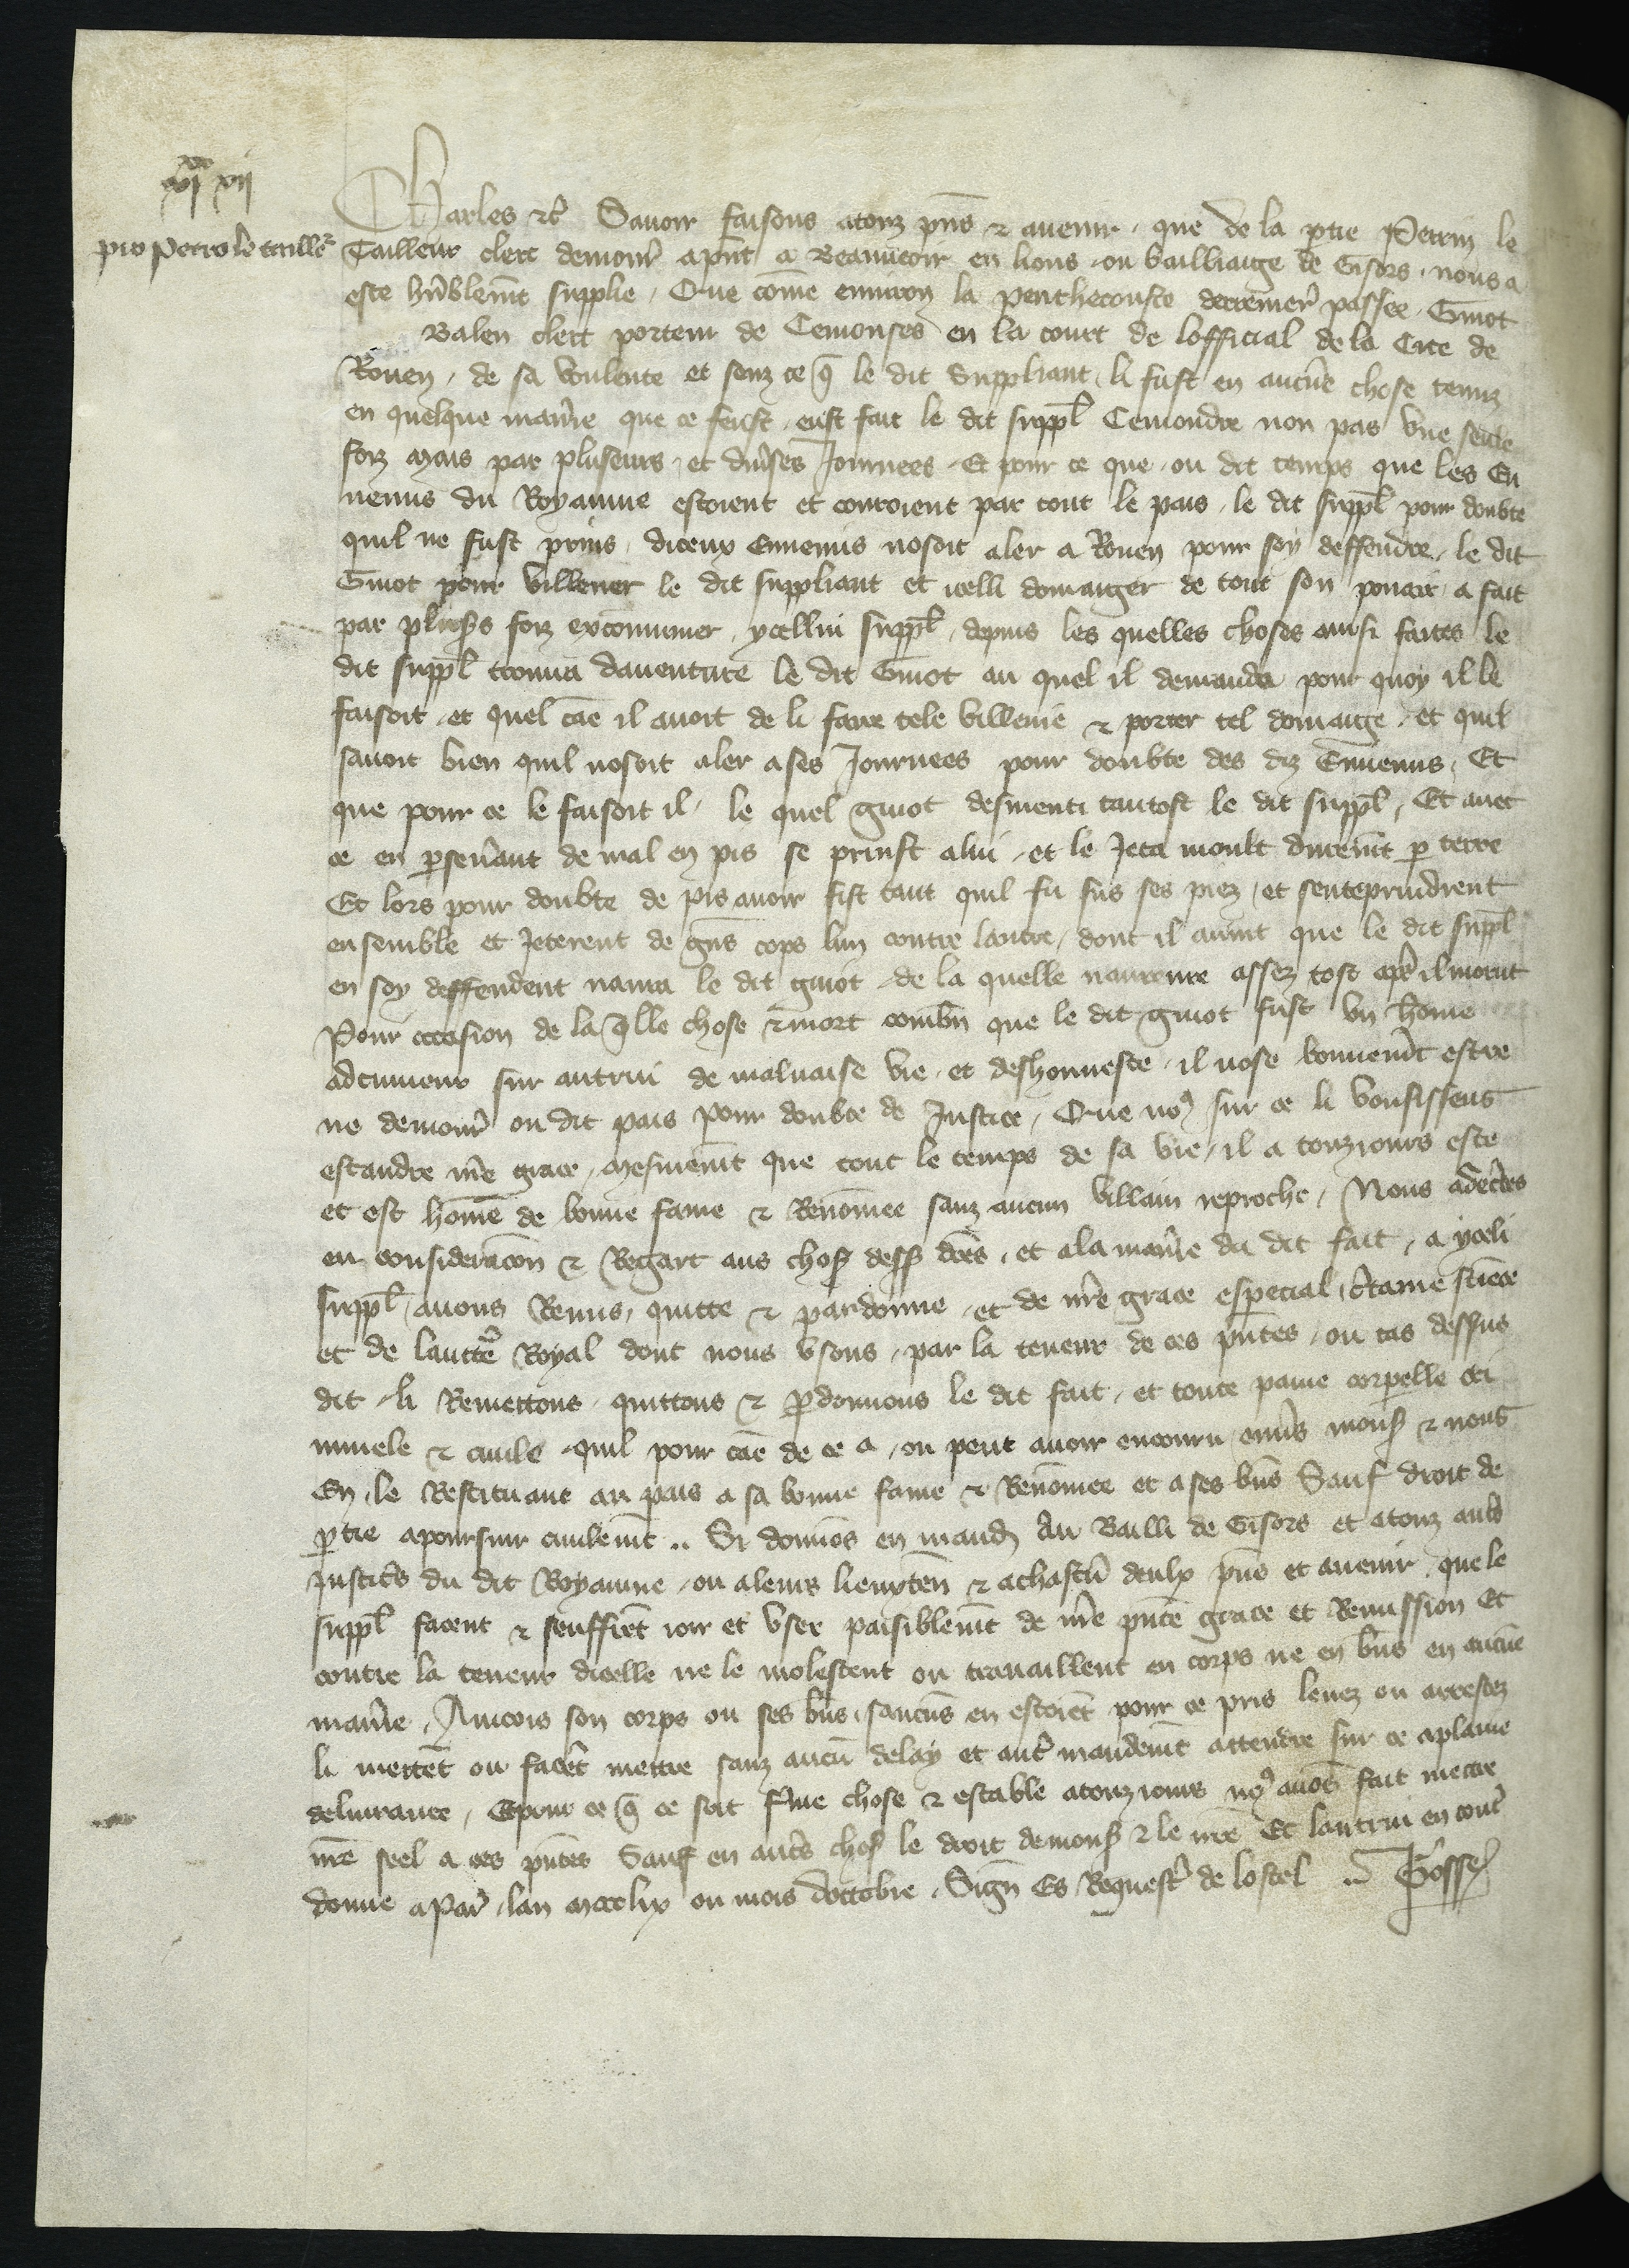 xvi xii
pro Petro le tailleˀ
Charles ⁊cˀ Sauoir faisons a touz pn̄s ⁊ auenir que de la ꝑtie Perrin le
Tailleur clerc demourˀ apn̄t a Beauuoir en lions ou bailliaige de Gisors nous a
este hūblem̄t supplie Que com̄e enuiron la penthecouste derrenierˀ passee Guiot
Balen clerc porteur de Cemonses en la court de lofficial de la Cite de
Rouen de sa voulente et senz ce q̄ le dit Suppliant li fust en aucūe chose tenuz
en quelque manˀie que ce feust eust fait le dit suppl̄ Cemondre non pas vne seule
foiz mais par pluseurs et diuˀses Journees Et pour ce que ou dit temps que les En
nemis du Royaume estoient et couroient par tout le pais le dit suppl̄ pour doubte
quil ne fust prins diceux Ennemis nosoit aler a Rouen pour soy deffendre le dit
Guiot pour villener le dit suppliant et icelli domaiger de tout son pouair a fait
par plusˀs foiz excommenier ycellui suppl̄ depuis les quelles choses ainsi faites le
dit suppl̄ trouua dauenture le dit Guiot au quel il demanda pour quoy il le
faisoit et quel cāe il auoit de li faire tele villenie ⁊ porter tel domaige et quil
sauoit bien quil nosoit aler a ses Journees pour doubte des diz Ennemis Et
que pour ce le faisoit il le quel guiot desmenti tantost le dit suppl̄ Et auec
ce en ꝑseuˀant de mal en pis se prinst a lui et le Jeta moult durem̄t ꝑ terre
Et lors pour doubte de pis auoir fist tant quil fu sus ses piez et sentreprindrent
ensemble et Jeterent de gn̄s cops lun contre lautre dont il auint que le dit suppl̄
en soy deffendent naura le dit guiot de la quelle naureure assez tost apˀs il morut
Pour occasion de la q̄lle chose ⁊ mort combn̄ que le dit guiot fust vn hom̄e
de maluaise vie et deshonneste il nose bonnem̄t estre
ne demourˀ ou dit pais pour doubte de Justice Que noꝰ sur ce li vousissens
estandre nr̄e grace mesmem̄t que tout le temps de sa vie il a touziours este
et est hom̄e de bonne fame ⁊ Renom̄ee sanz aucun villain reproche Nous adecˀtes
en consideracōn ⁊ Regart aus chosˀ dessˀ dc̄es et a la manˀie du dit fait a yceli
suppl̄ auons Remis quitte ⁊ pardonne et de nr̄e grace especial cˀtaine sciēce
et de lauctˀe Royal dont nous vsons par la teneur de ces pn̄tes ou cas dessus
dit li Remettons quittons ⁊ ꝑdonnons le dit fait et toute paine corpelle cri
minele ⁊ ciuile quil pour cāe de ce a ou peut auoir encouru enuˀs monsˀ ⁊ nous
En le Restituant au pais a sa bonne fame ⁊ Renom̄ee et a ses bn̄s Sauf droit de
ꝑtie a poursuir ciuilem̄t Si donnōs en mandˀ Au Bailli de Gisors et a touz autˀs
Justicˀs du dit Royaume ou a leurs lieuxten̄ ⁊ a chascū deulx pn̄s et auenir que le
suppl̄ facent ⁊ seuffrēt ioir et vser paisiblem̄t de nr̄e pn̄te grace et Remission Et
contre la teneur dicelle ne le molestent ou trauaillent en corps ne en bn̄s en aucūe
manˀie Aincois son corps ou ses bn̄s saucūs en estoiēt pour ce pris leuez ou arrestez
li mettēt ou facēt mettre sanz aucū delay et autˀ mandem̄t attendre sur ce a plaine
deliurance Et pour ce q̄ ce soit fˀme chose ⁊ estable a touziours noꝰ auōs fait mettre
nr̄e seel a ces pn̄tes Sauf en autˀs chosˀ le droit de monsˀ ⁊ le nr̄e Et lautrui en toutˀ
donne a Parˀ lan mccclix ou mois doctobre Sign̄ Es Requestˀ de lostel Gossˀ